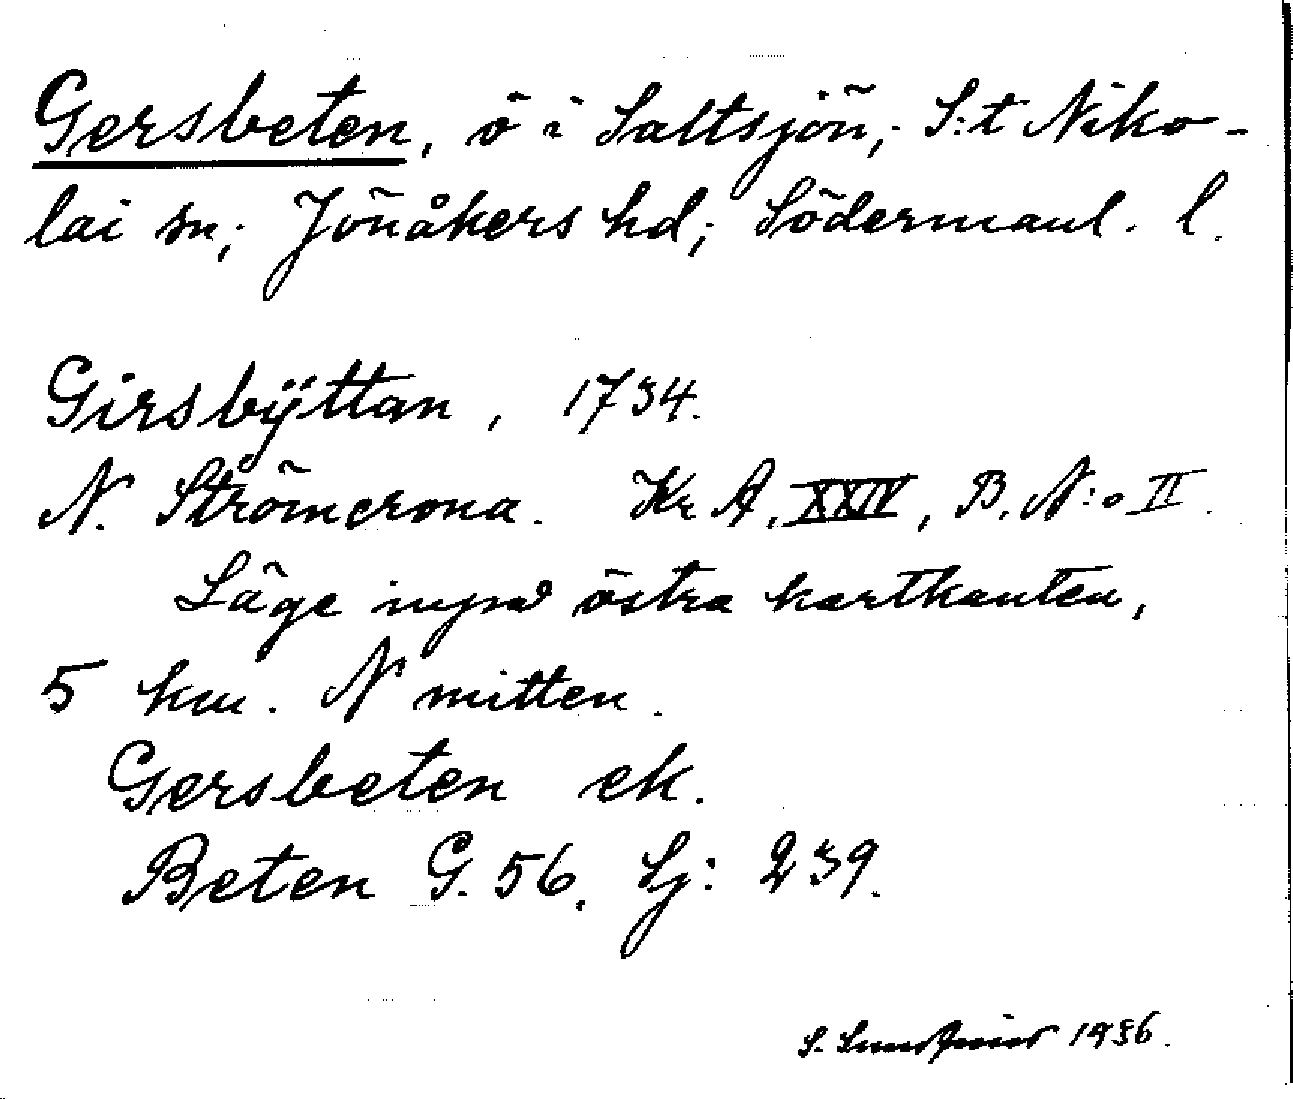 Gersbeten, ö i Saltsjön, S:t Niko-
lai sn; Jönåkers hd; Södermanl. l.
Girsbÿttan, 1734.
N. Strömcrona. Kr A, XXIV, B. N:o II.
Läge invid östra kartkanten,
5 km. N mitten.
Gersbeten ek.
Beten G. 56. Sj: 239.
S. 1936.